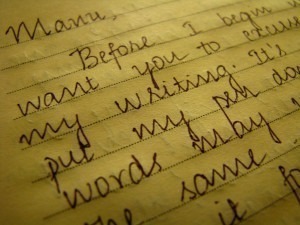 Manu,
Before I begin
want you to excuse
my writing. It's
put my pen do
words may
the same.
it fo